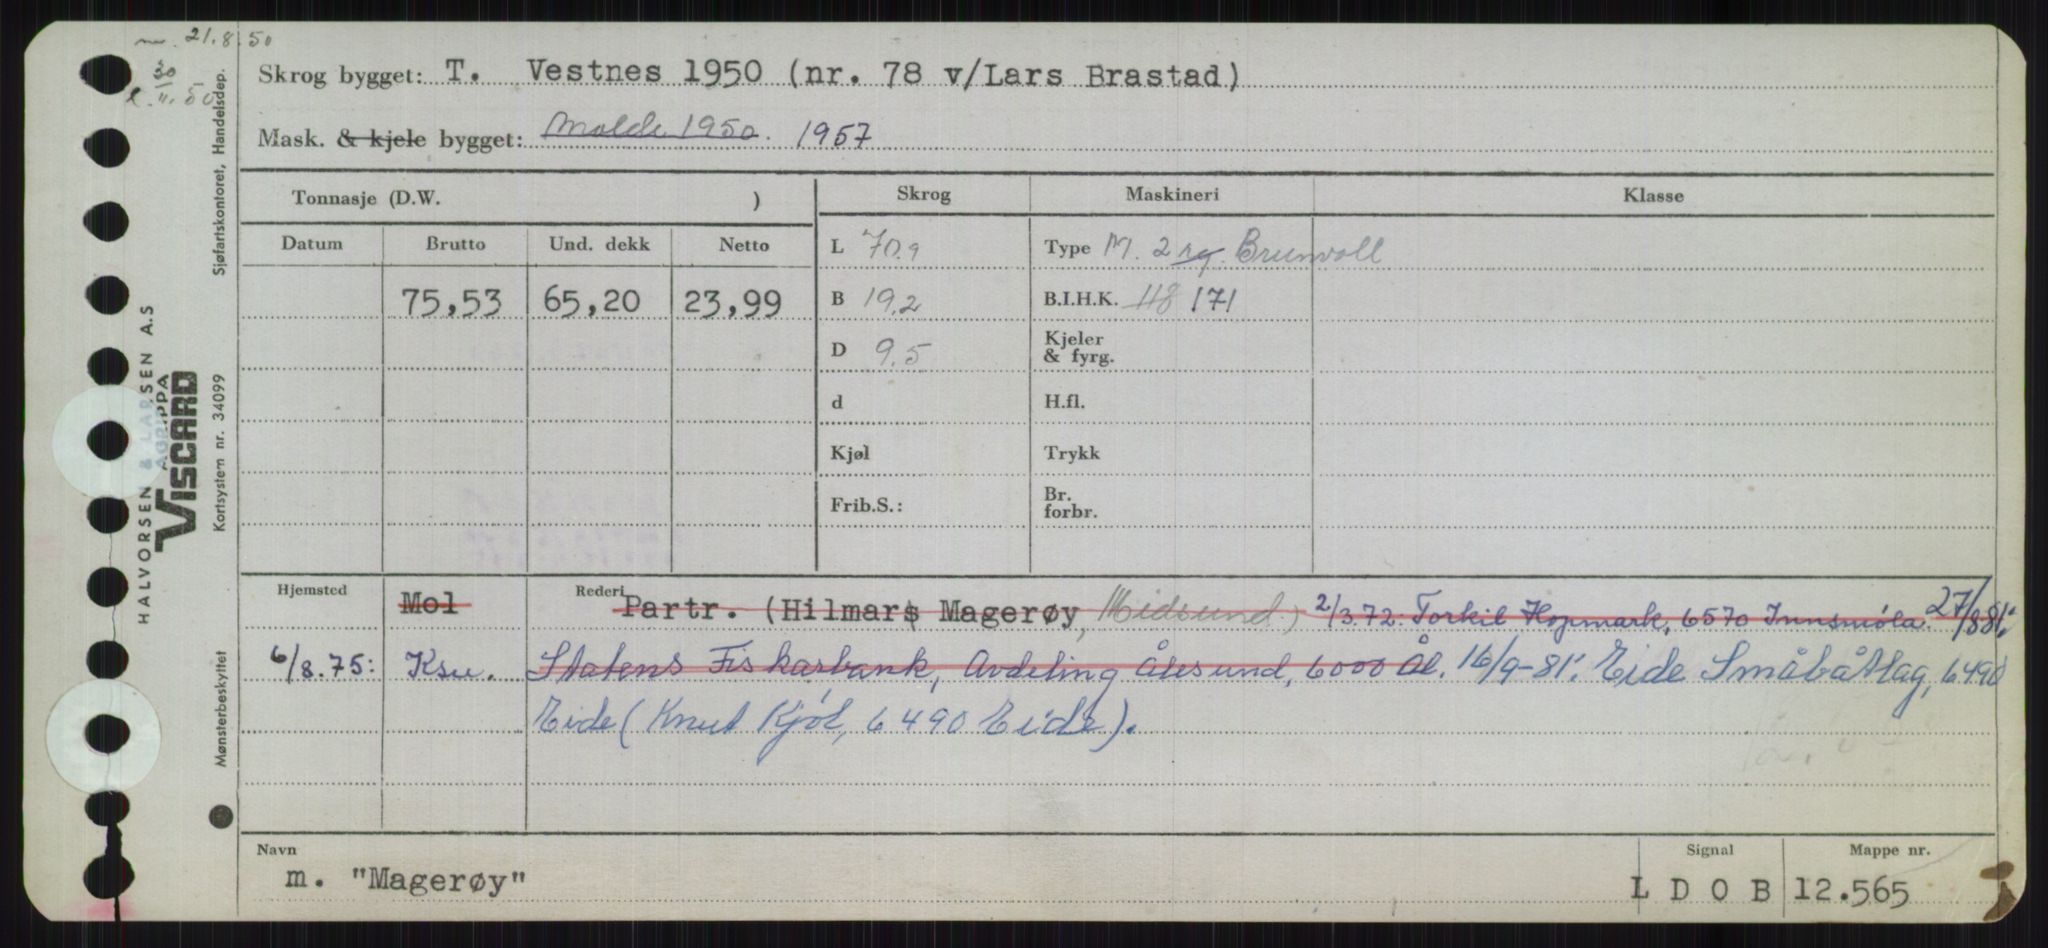 21.8.50
30
11.50
Skrog bygget: T. Vestnes 1950 (nr. 78 v/Lars Brastad)
Mask. & kjele bygget: Molde 1950. 1957
Tonnasje (D.W. )
Skrog
Maskineri
Klasse
Datum
Brutto
Und. dekk
Netto
L 70,9
Type M. 2 rg. Brunvoll
75,53
65,20
23,99
B 19,2
B.I.H.K. 118 171
D 9,5
Kjeler
& fyrg.
d
H.fl.
Kjøl
Trykk
Frib.S.:
Br.
forbr.
Hjemsted
Mol
Rederi
Partr. (Hilmars Magerøy, Midsund.) 2/3.72: Torkil Hopmark, 6570 Innsmøla. 27/8.81:
6/8.75: Ksu. Statens Fiskarbank, Avdeling Ålesund, 6000 Ål. 16/9-81: Eide Småbåtlag, 6490
Eide (Knut Kjøl, 6490 Eide).
Navn
m. "Magerøy"
Signal
L D O B
Mappe nr.
12.565
HALVORSEN & LARSEN A.S
AGRIPPA
VISCARD
Kortsystem nr. 34099
Sjøfartskontoret, Handelsdep.
Mønsterbeskyttet